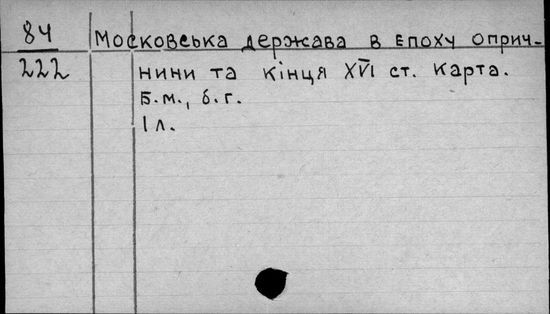 84 Московська держава в епоху oприч-
222 нини та кінця XVI ст. карта.
Б.м., б.г.
1 л.